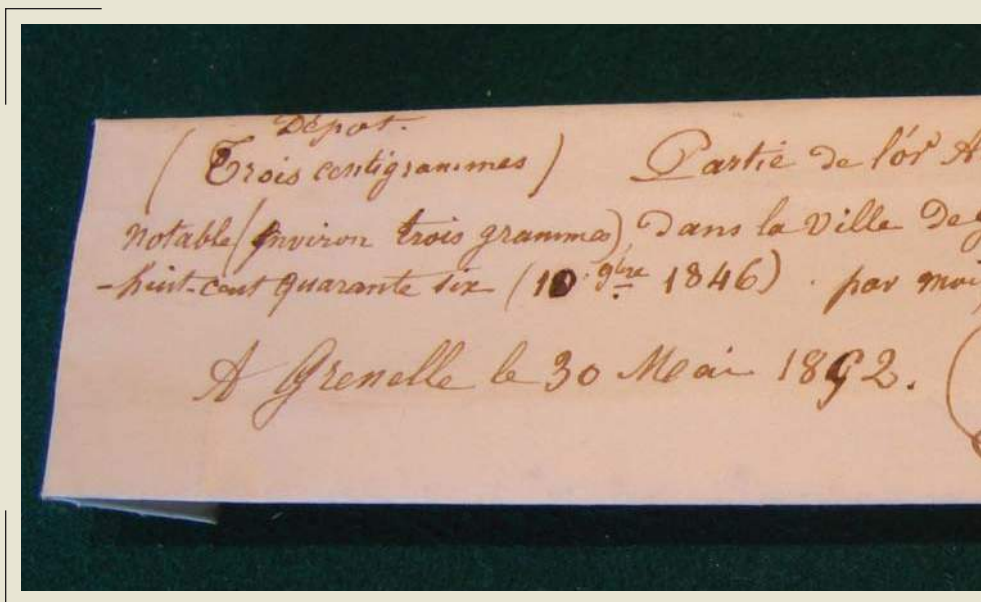 Dépot.
(Trois centigrammes) Partie de l'or
notable (environ trois grammes), dans la Ville de
-huit-cent quarante six (10 9bre 1846) . par moi
A Grenelle le 30 Mai 1852.